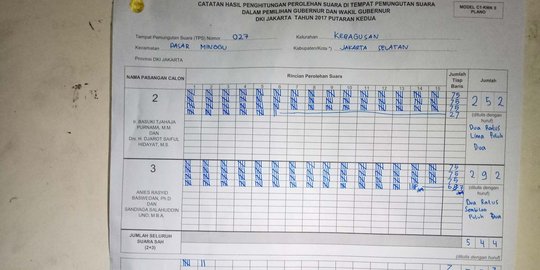 CATATAN HASIL PENGHITUNGAN PEROLEHAN SUARA DI TEMPAT PEMUNGUTAN SUARA
DALAM PEMILIHAN GUBERNUR DAN WAKIL GUBERNUR
DKI JAKARTA TAHUN 2017 PUTARAN KEDUA
MODEL C1-KWK
PLANO
Tempat Pemungutan Suara (TPS) Nomor : 027
Kelurahan : KEBAGUSAN
Kecamatan : PASAR MINGGU
Kabupaten/Kota*) : JAKARTA SELATAN
Provinsi DKI JAKARTA
NAMA PASANGAN CALON
Rincian Perolehan Suara
Jumlah Tiap Baris
Jumlah
1 2 3 4 5 6 7 8 9 10 11 12 13 14 15
2
Ir. BASUKI TJAHAJA
PURNAMA, M.M.
DAN
Drs. H. DJAROT SAIFUL
HIDAYAT, M.S.
75
75
75
27
252
(ditulis dengan huruf)
Dua Ratus
Lima Puluh
Dua
3
ANIES RASYID
BASWEDAN, Ph.D
DAN
SANDIAGA SALAHUDDIN
UNO, M.B.A
75
75
75
292
(ditulis dengan huruf)
Dua Ratus
Sembilan
Puluh Dua
JUMLAH SELURUH
SUARA SAH
(2+3)
544